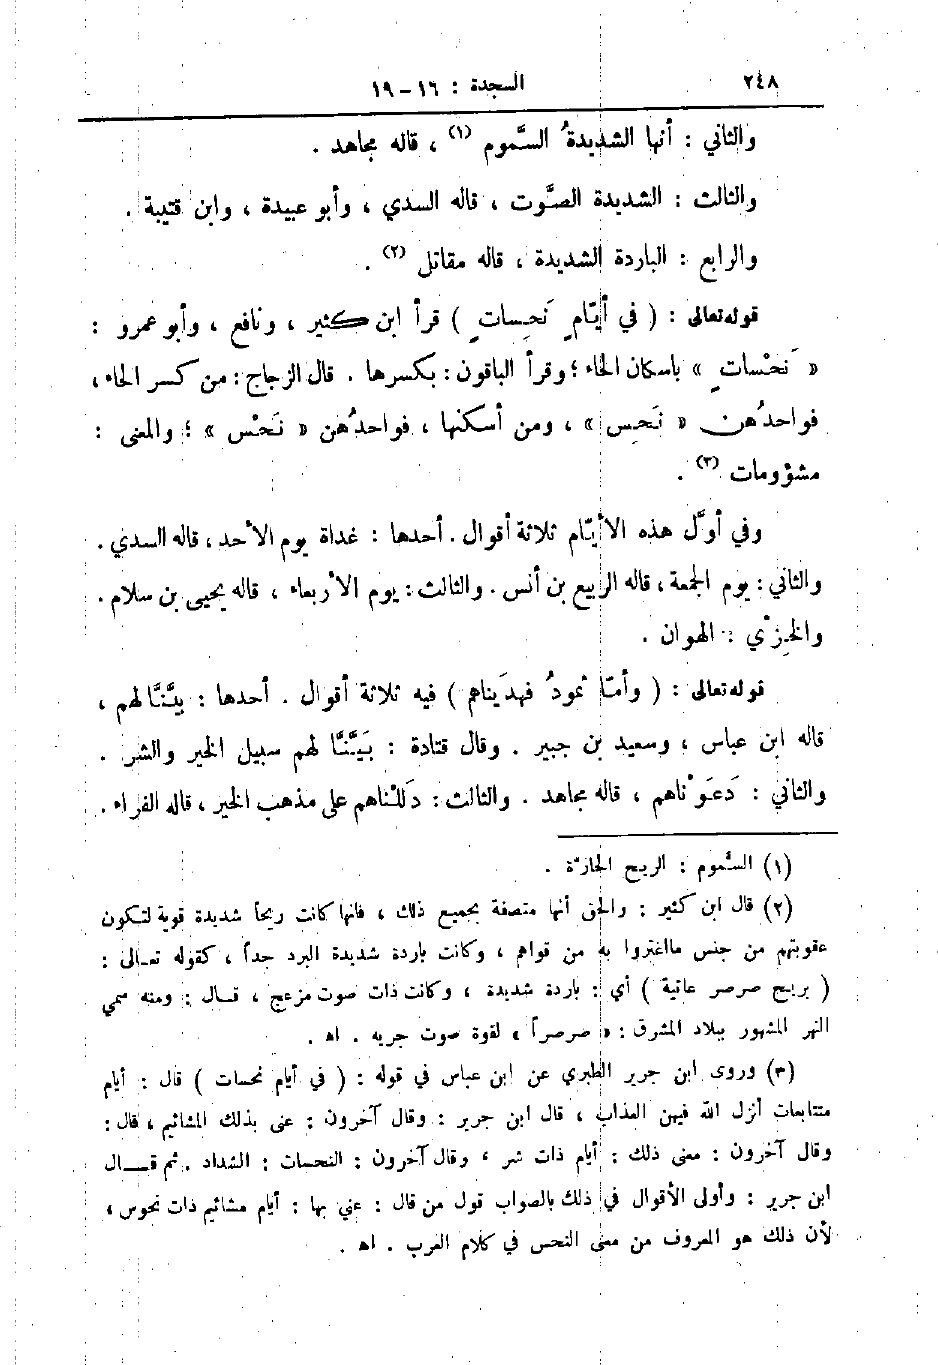 ٢٤٨
السجدة : ١٦ – ١٩
والثاني : أنها الشديدةُ السَّموم (١) ، قاله مجاهد .
والثالث : الشديدة الصَّوت ، قاله السدي ، وأبو عبيدة ، وابن قتيبة .
والرابع : الباردة الشديدة ، قاله مقاتل (٢) .
قوله تعالى : ( في أيّامٍ نَحِساتٍ ) قرأ ابن كثير ، ونافع ، وأبو عمرو :
« نَحْساتٍ » باسكان الحاء ؛ وقرأ الباقون : بكسرها . قال الزجاج : من كسر الحاء ،
فواحدُهن « نَحِس » ، ومن أسكنها ، فواحدُهن « نَحْس » ؛ والمعنى :
مشؤومات (٣) .
وفي أوَّل هذه الأيّام ثلاثة أقوال . أحدها : غداة يوم الأحد ، قاله السدي .
والثاني : يوم الجمعة ، قاله الربيع بن أنس . والثالث : يوم الأربعاء ، قاله يحيى بن سلام .
والخِزْي : الهوان .
قوله تعالى : ( وأمّا ثمودُ فهدَيناهم ) فيه ثلاثة أقوال . أحدها : بيَّنَّا لهم ،
قاله ابن عباس ، وسعيد بن جبير . وقال قتادة : بَيَّنَّا لهم سبيل الخير والشر .
والثاني : دَعَوْناهم ، قاله مجاهد . والثالث : دَلَلْناهم على مذهب الخير ، قاله الفراء .
(١) السَّموم : الريح الحارّة .
(٢) قال ابن كثير : والحق أنها متصفة بجميع ذلك ، فانها كانت ريحاً شديدة قوية لتكون
عقوبتهم من جنس مااغتروا به من قواهم ، وكانت باردة شديدة البرد جداً ، كقوله تعالى :
( بريح صرصر عاتية ) أي : باردة شديدة ، وكانت ذات صوت مزعج ، قال : ومنه سمي
النهر المشهور ببلاد المشرق : « صرصراً » لقوة صوت جريه . اهـ .
(٣) وروى ابن جرير الطبري عن ابن عباس في قوله : ( في أيام نحسات ) قال : أيام
متتابعات أنزل الله فيهن العذاب ، قال ابن جرير : وقال آخرون : عنى بذلك المشائيم ، قال :
وقال آخرون : معنى ذلك : أيام ذات شر ، وقال آخرون : النحسات : الشداد . ثم قال
ابن جرير : وأولى الأقوال في ذلك بالصواب قول من قال : عني بها : أيام مشائيم ذات نحوس ،
لأن ذلك هو المعروف من معنى النحس في كلام العرب . اهـ .